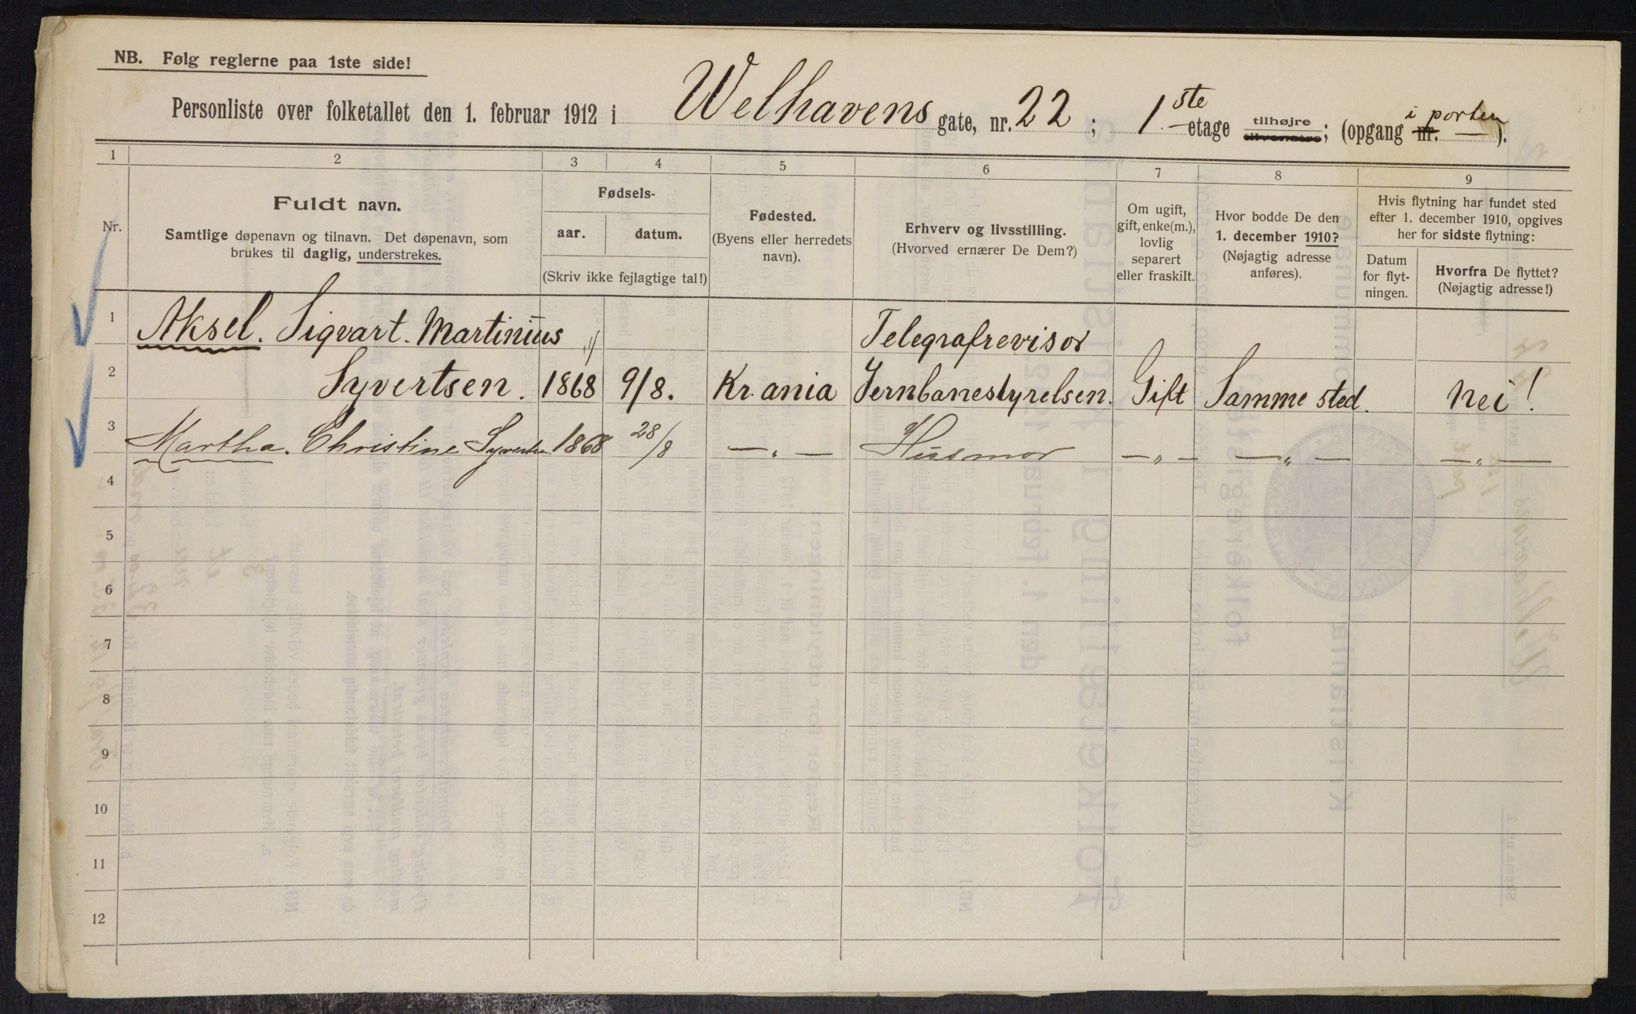 NB. Følg reglerne paa 1ste side!
Personliste over folketallet den 1. februar 1912 i Welhavens gate, nr. 22; 1ste etage tilhøjre tilvenstre; (opgang nr. i porten — ).
1 2 3 4 5 6 7 8 9
Nr.
Fuldt navn.
Samtlige døpenavn og tilnavn. Det døpenavn, som
brukes til daglig, understrekes.
Fødsels-
aar. datum.
(Skriv ikke fejlagtige tal!)
Fødested.
(Byens eller herredets
navn).
Erhverv og livsstilling.
(Hvorved ernærer De Dem?)
Om ugift,
gift, enke(m.),
lovlig
separert
eller fraskilt.
Hvor bodde De den
1. december 1910?
(Nøjagtig adresse
anføres).
Hvis flytning har fundet sted
efter 1. december 1910, opgives
her for sidste flytning:
Datum
for flyt-
ningen.
Hvorfra De flyttet?
(Nøjagtig adresse!)
1 Aksel. Sigvart. Martinius Telegrafrevisor
2 Syvertsen. 1868 9/8. Kr.ania Jernbanestyrelsen. Gift Samme sted. Nei!
3 Martha. Christine Syvertsen 1868 28/8 — „ — Husmor — „ — — „ — — „ —
4
5
6
7
8
9
10
11
12